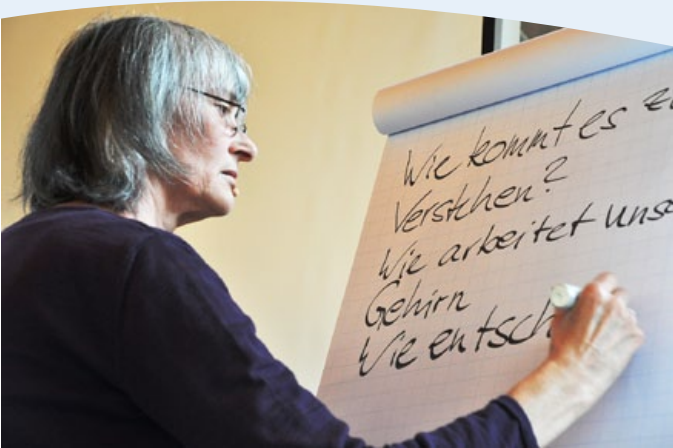 Wie kommt es z
Verstehen?
Wie arbeitet uns
Gehirn
Wie entsch